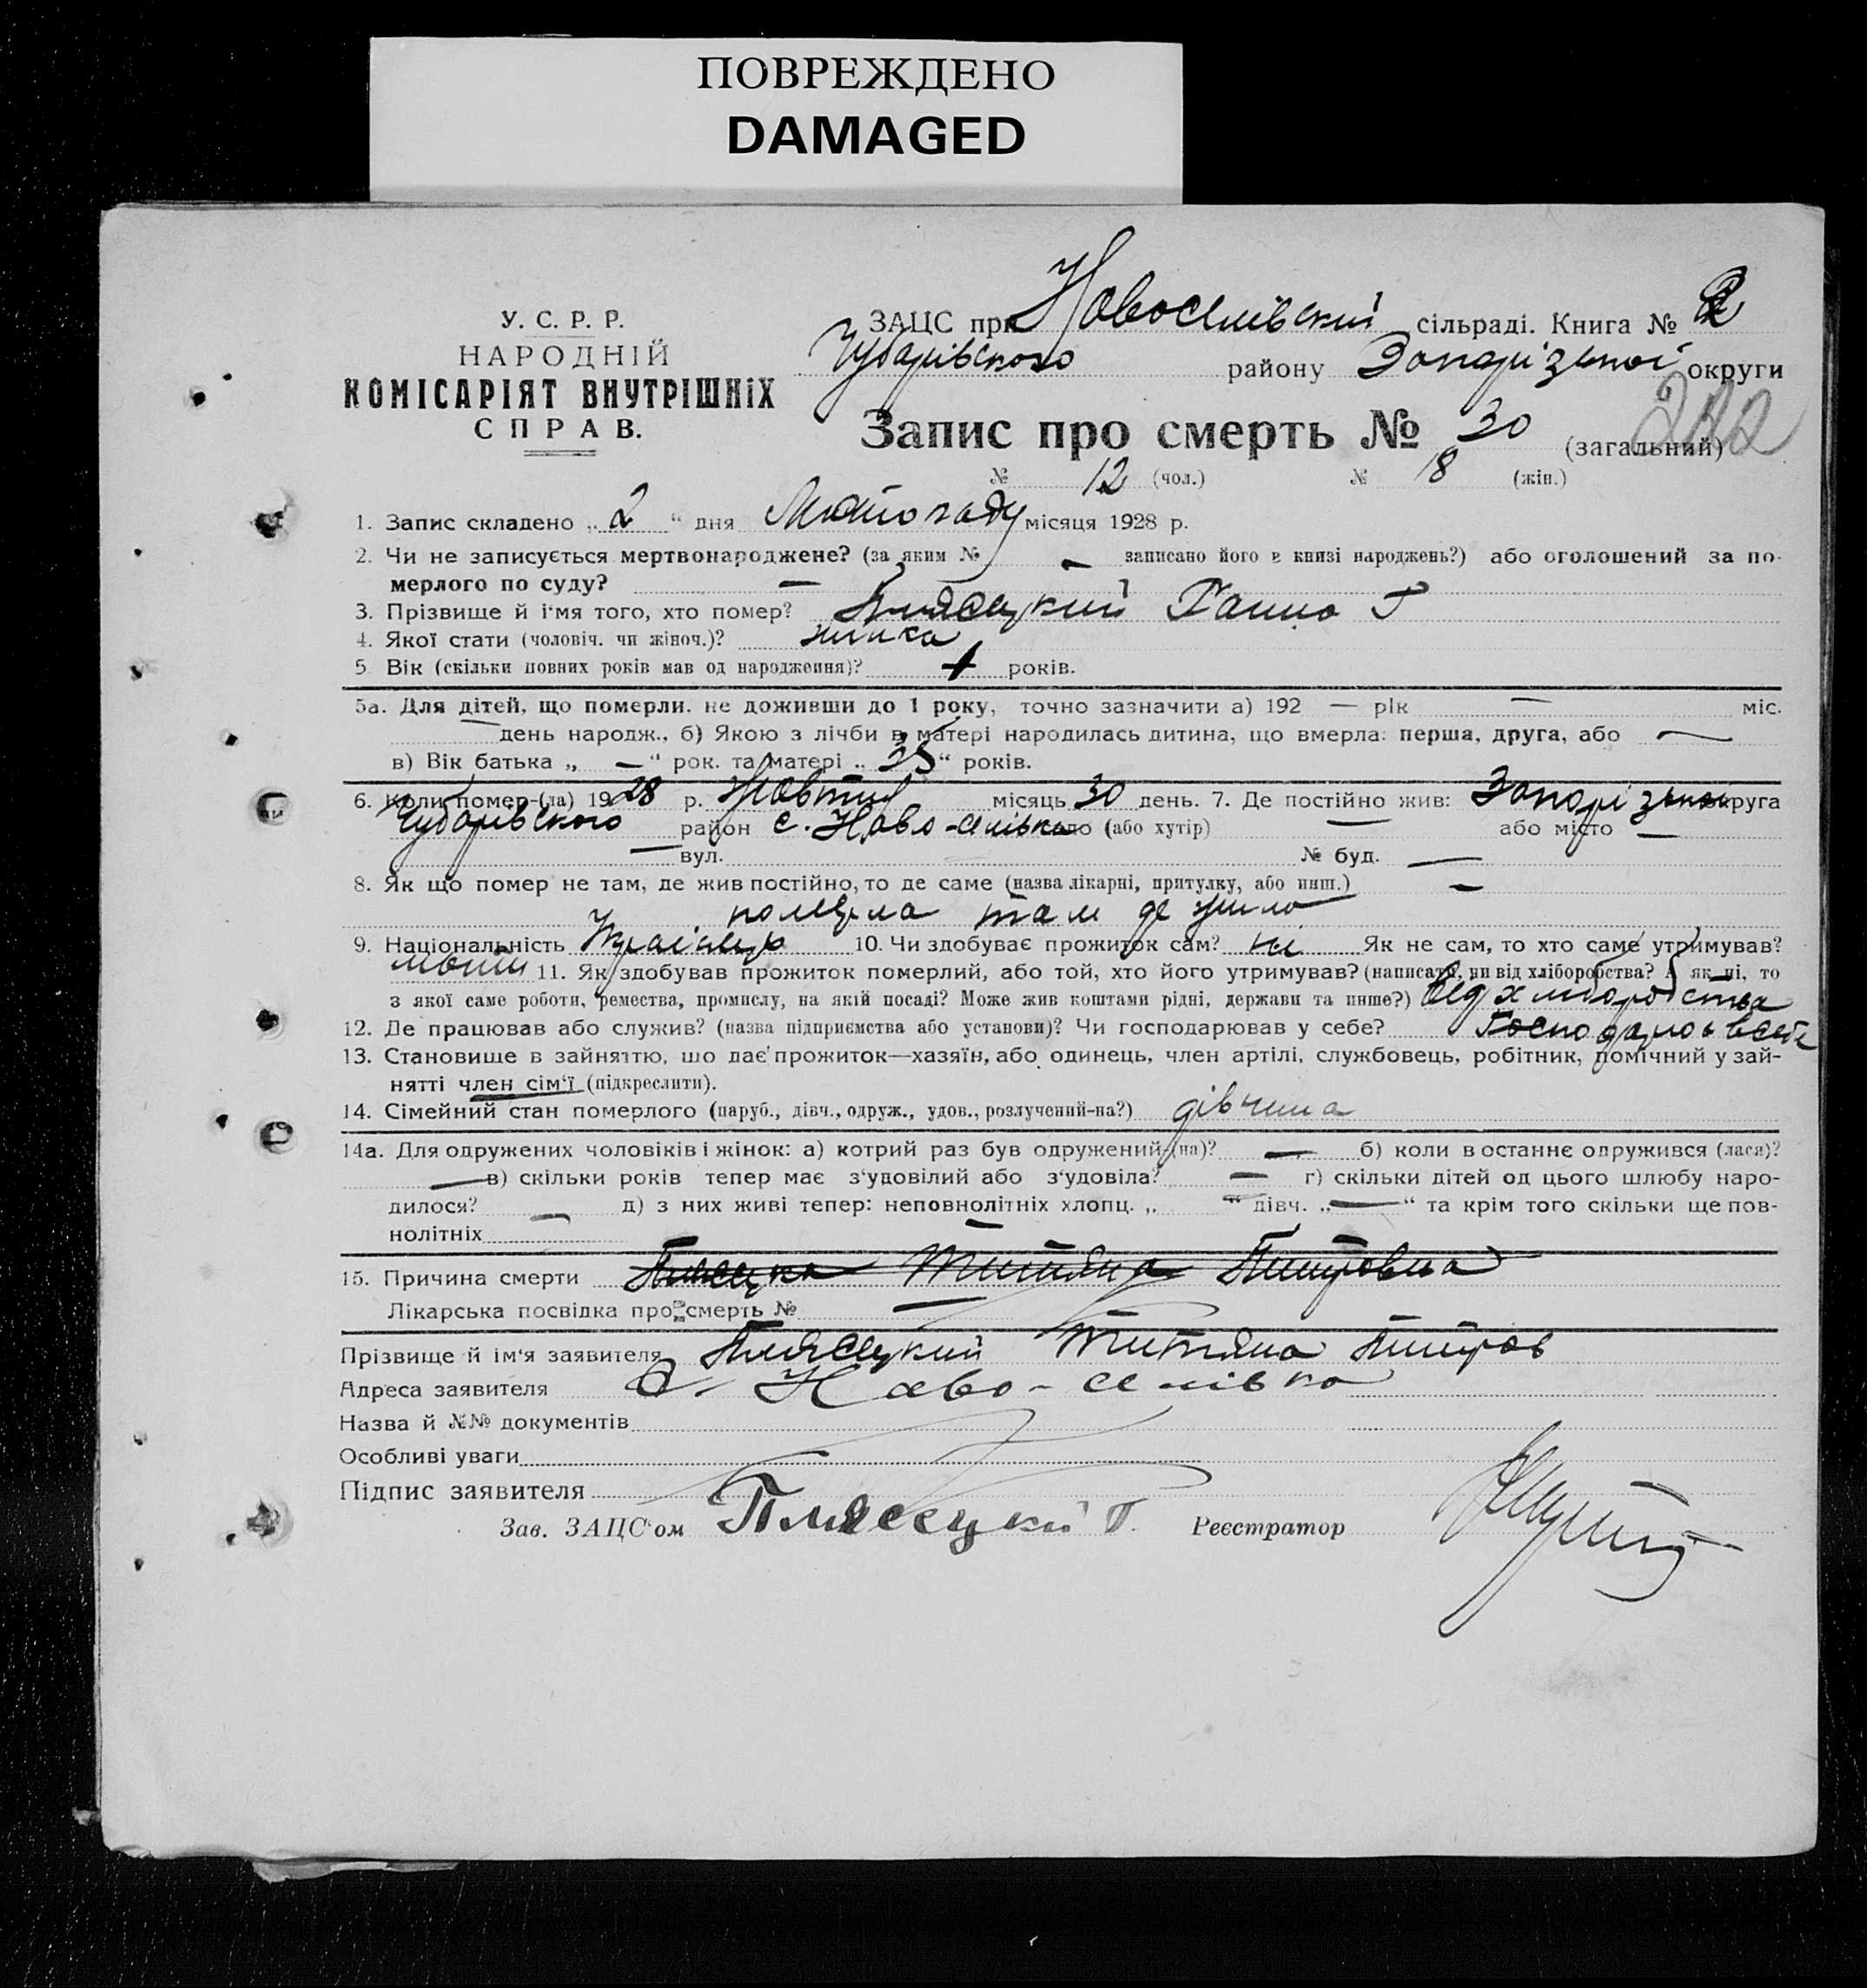 ПОВРЕЖДЕНО
DAMAGED
У. С. Р. Р.
НАРОДНІЙ
КОМІСАРІЯТ ВНУТРІШНІХ
СПРАВ.
ЗАЦС при Новоселівский сільраді. Книга № 2
Чубарівского району Запорізької округи
Запис про смерть № 30 (загальний) 222
№ 12 (чол.) № 18 (жін.)
1. Запис складено „ 2 “ дня Листопаду місяця 1928 р.
2. Чи не записується мертвонароджене? (за яким № — записано його в книзі народжень?) або оголошений за по-
мерлого по суду? —
3. Прізвище й і'мя того, хто помер? Плясецкий Ганна Г
4. Якої стати (чоловіч. чи жіноч.)? жинка
5 Вік (скільки повних років мав од народження)? 1 років.
5а. Для дітей, що померли. не доживши до 1 року, точно зазначити а) 192 — рік — міс.
— день народж., б) Якою з лічби в матері народилась дитина, що вмерла: перша, друга, або —
в) Вік батька „ — “ рок. та матері „ 25 “ років.
6. Коли помер-(ла) 1928 р. Жовтня місяць 30 день. 7. Де постійно жив: Запорізької округа
Чубарівского район с. Ново-селівка село (або хутір) — або місто —
— вул. № буд. —
8. Як що помер не там, де жив постійно, то де саме (назва лікарні, притулку, або инш.) —
померла там де жила
9. Національність Українець 10. Чи здобуває прожиток сам? ні Як не сам, то хто саме утримував?
11. Як здобував прожиток померлий, або той, хто його утримував? (написати, чи від хліборобства? А як ні, то
з якої саме роботи, ремества, промислу, на якій посаді? Може жив коштами рідні, держави та инше?) Від хліборобства
12. Де працював або служив? (назва підприємства або установи)? Чи господарював у себе? Господарюв в себе
13. Становище в зайняттю, що дає прожиток—хазяїн, або одинець, член артілі, службовець, робітник, помічний у зай-
нятті член сім'ї (підкреслити).
14. Сімейний стан померлого (паруб., дівч., одруж., удов., розлучений-на?) дівчина
14а. Для одружених чоловіків і жінок: а) котрий раз був одружений-(на)? — б) коли в останнє одружився (лася)?
— в) скільки років тепер має з'удовілий або з'удовіла? — г) скільки дітей од цього шлюбу наро-
дилося? — д) з них живі тепер: неповнолітніх хлопц. „ — “ дівч. „ — “ та крім того скільки ще пов-
нолітніх —
15. Причина смерти
Лікарська посвідка про смерть № —
Прізвище й ім'я заявителя Плясецкий
Адреса заявителя с. Ново-селівка
Назва й №№ документів
Особливі уваги
Підпис заявителя
Зав. ЗАЦС'ом Плясецкий Г. Реєстратор